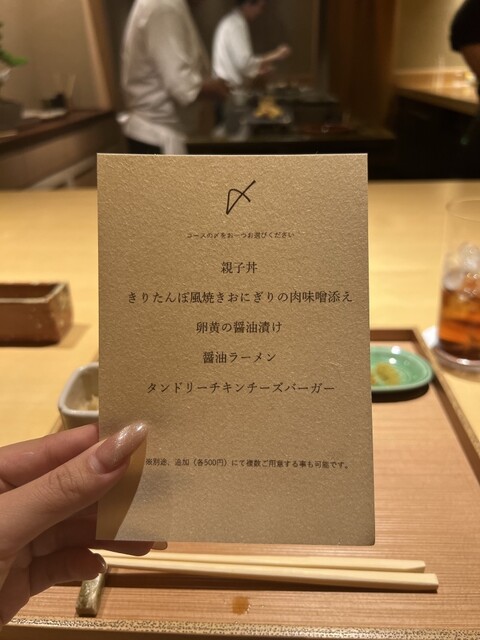 〆
コースの〆をお一つお選びください
親子丼
きりたんぽ風焼きおにぎりの肉味噌添え
卵黄の醤油漬け
醤油ラーメン
タンドリーチキンチーズバーガー
別途、追加（各500円）にて複数ご用意する事も可能です。